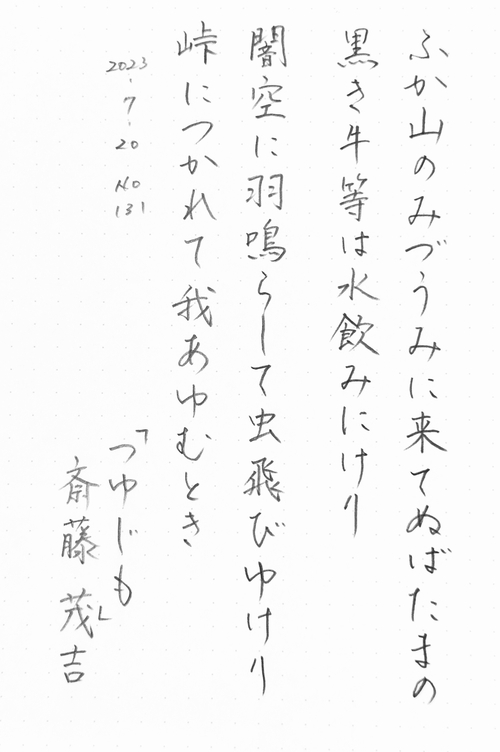 ふか山のみづうみに来てぬばたまの
黒き牛等は水飲みにけり
闇空に羽鳴らして虫飛びゆけり
峠につかれて我あゆむとき
2023・7・20 No 131
「つゆじも」
斎藤茂吉